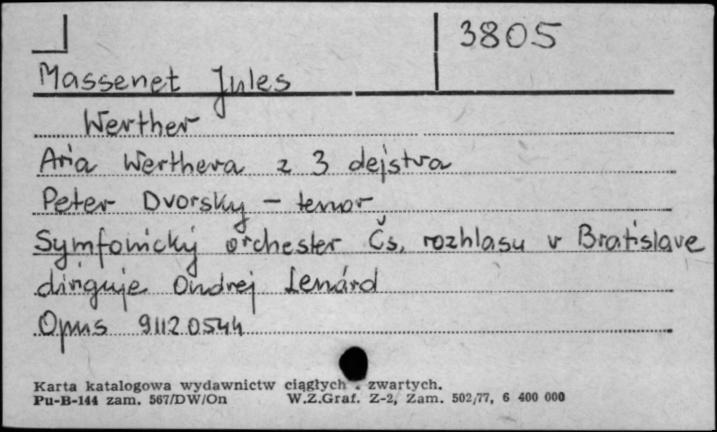 3805
Massenet Jules
Werther
Aria Werthera z 3 dejstva
Peter Dvorsky - tenor
Symfonický orchester Čs. rozhlasu v Bratislave
diriguje Ondrej Lenárd
Opus 9112 0544
Karta katalogowa wydawnictw ciągłych i zwartych.
Pu-B-144 zam. 567/DW/On W.Z.Graf. Z-2, Zam. 502/77, 6 400 000